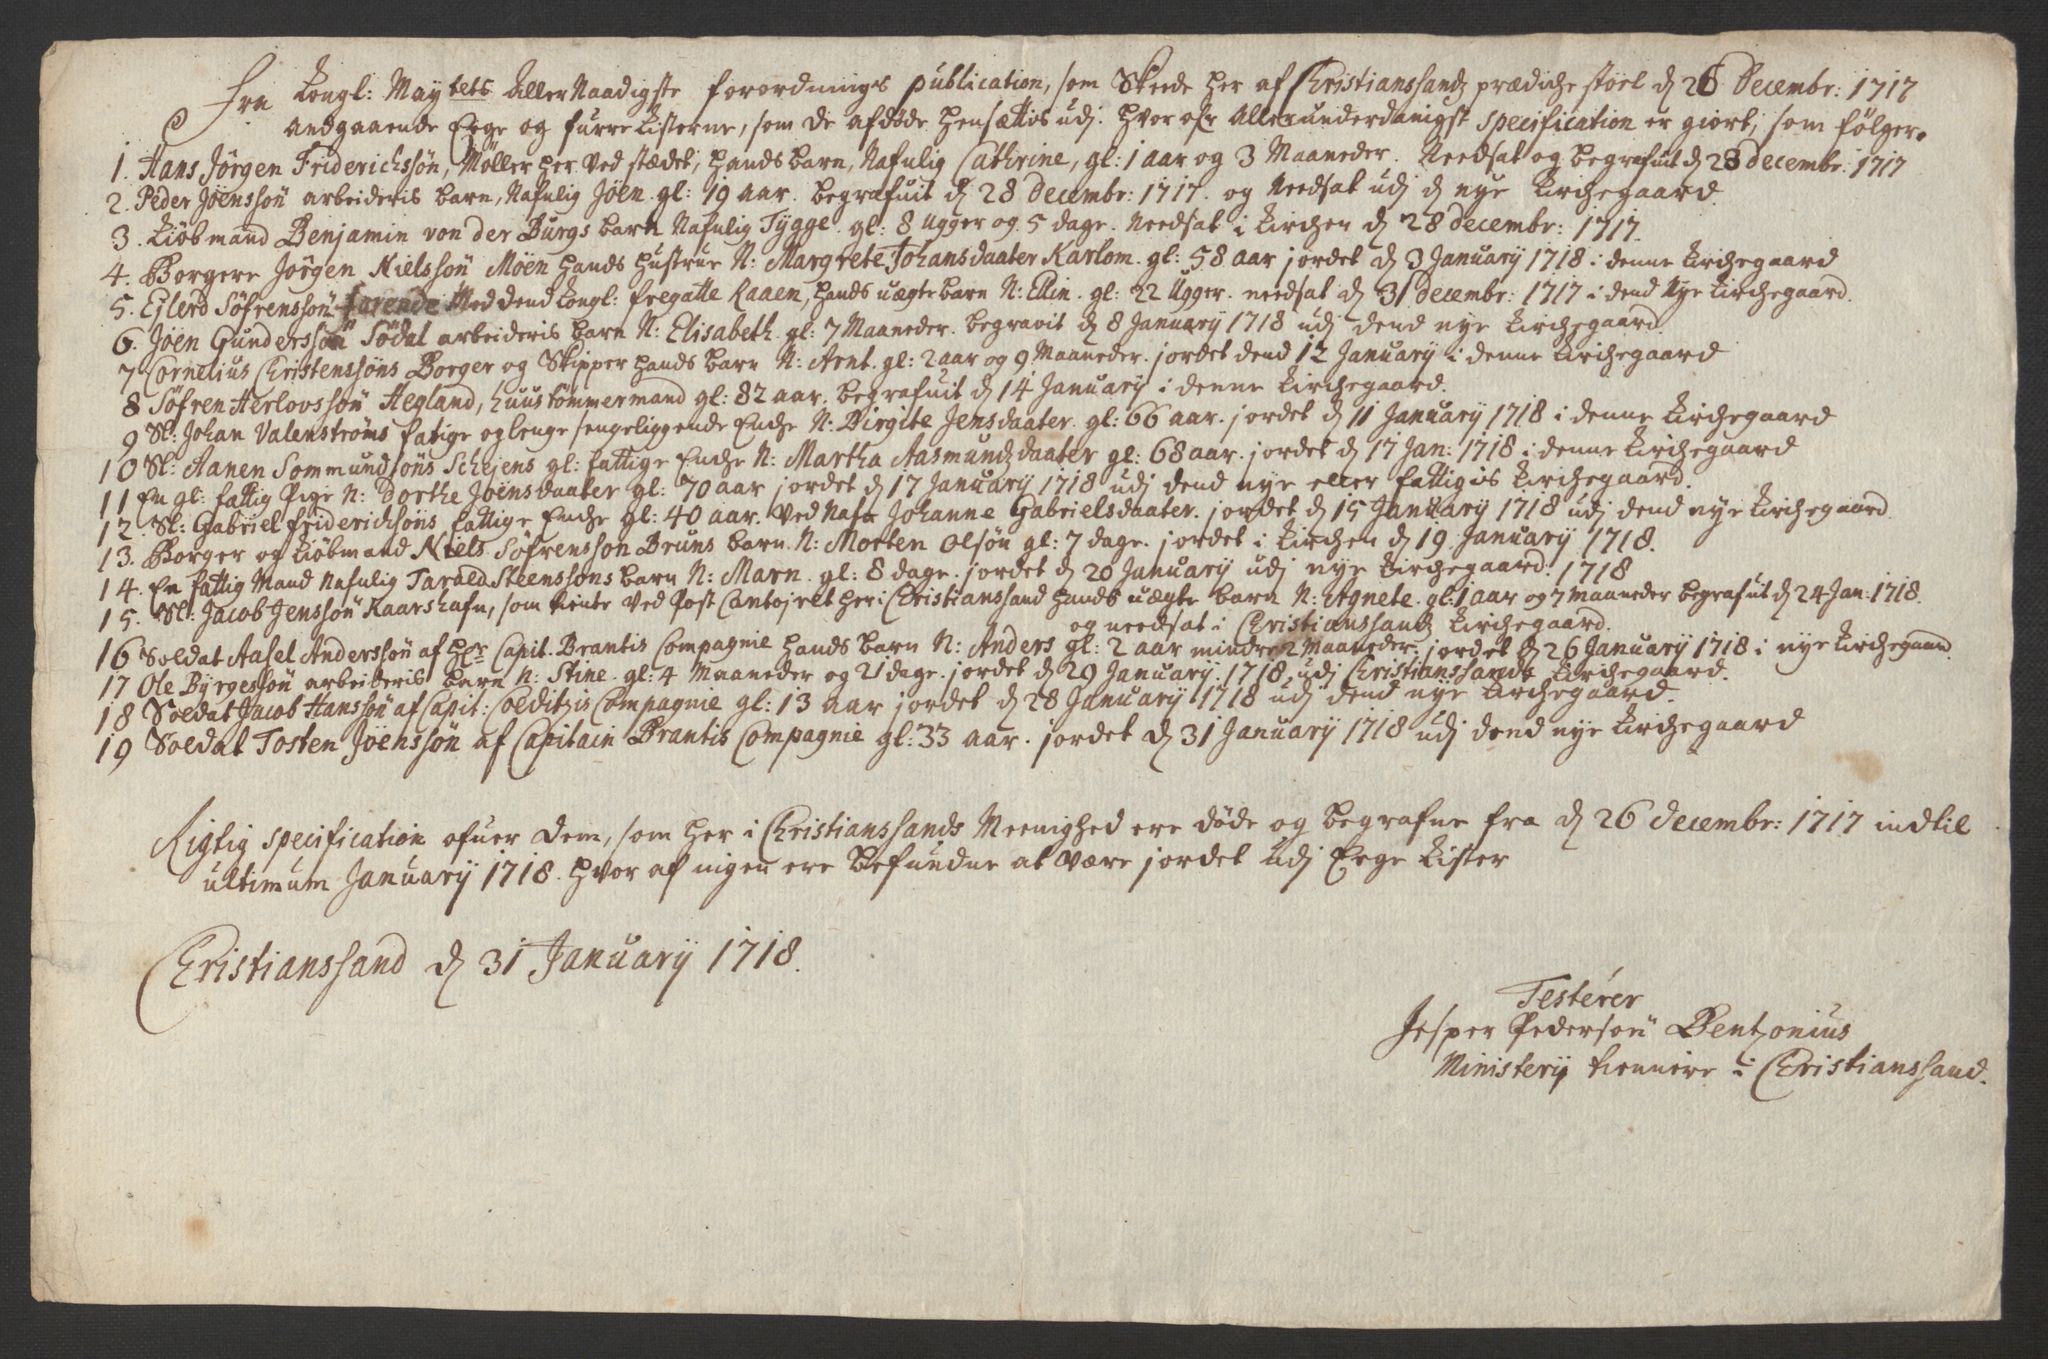 Fra Kongl: Maytets Aller Naadigste forordnings publication, som Skeede her af Christianssandz prædiche stoel d 26 Decembr: 1717
andgaaende Eege og furre kisterne, som de afdøde hensættis udj. hvor ofr Allerunderdanigst specification er giort, som følger.
1. Hans Jørgen Friderichssøn, Møller her ved stædet, hands barn, Nafnlig Cathrine, gl: 1 aar og 3 Maaneder. Needsat og begrafuit d 28 decembr. 1717
2. Peder Joenssøn arbeideris barn, Nafnlig Joen. gl: 19 aar. begrafuit d 28 decembr: 1717. og Needsat udj d nye Kirchegaard.
3. Kiøbmand Benjamin von der Burgs barn Nafnlig Tygge. gl: 8 ugger og 5 dage. Needsat i Kirchen d 28 decembr: 1717.
4. Borgere Jørgen Nielssøn Moen hands hustrue N: Margrete Johansdaater Karlom. gl: 58 aar jordet d 3 January 1718 i denne Kirchegaard
5. Ejlerd Søfrenssøn farende Med dend kongl: fregatte Raaen, hands uægte barn N: Ellin. gl: 22 Ugger. needsat d 31 decembr: 1717 i dend Nye Kirchegaard.
6. Joen Gunderssøn Sødal arbeideris barn N: Elisabeth. gl: 7 Maaneder. begravit d 8 January 1718 udj dend nye Kirchegaard.
7 Cornelius Christenssøns Borger og Skipper hands barn N: Arnt. gl: 2 aar og 9 Maaneder. jordet dend 12 January i denne Kirchegaard
8 Søfren Herlovssøn Hegland, huustømmermand gl: 82 aar. begrafuit d 14 January i denne Kirchegaard.
9 Sl: Johan Valenstrøms fatige og lenge sengeliggende Enche N: Birgite Jensdaater. gl: 66 aar. jordet d 11 January 1718 i denne Kirchegaard
10 Sl: Aanen Sommundsøns Schejens gl: fattige Enche N: Martha Aasmundzdaater gl: 68 aar. jordet d 17 Jan: 1718 i denne Kirchegaard
11 En gl: fattig Pige N: Dorthe Joensdaater gl: 70 aar jordet d 17 January 1718 udj dend nye eller fattigis Kirchegaard.
12. Sl: Gabriel friderichsøns fattige Enche gl: 40 aar. Ved Nafn Johanne Gabrielsdaater. jordet d 15 January 1718 udj dend nye Kirchegaard.
13. Borger og Kiøbmand Niels Søfrensson Bruns barn. N: Morten Olsøn gl: 7 dage. jordet i Kirchen d 19. January 1718.
14. En fattig Mand Nafnlig Tarald Steenssøns barn N: Marn. gl: 8 dage. jordet d 20 January udj nye Kirchegaard. 1718
15. Sl: Jacob Jenssøn Kaarshafn, som tiente ved Post Cantojret her i Christianssand hands uægte barn N: Agnete. gl: 1 aar og 7 maaneder begrafuit d 24 Jan: 1718.
og needsat i Christianssandz Kirchegaard.
16 Soldat Aasel Anderssøn af Hr Capit. Brantis Compagnie hands barn N: Anders gl: 2 aar mindre 2 Maaneder. jordet d 26 January 1718 i nye Kirchegaard.
17 Ole Byrgessøn arbeideris barn N: Stine. gl: 4 Maaneder og 21 dage. jordet d 29 January. 1718. udj Christianssands Kirchegaard.
18 Soldat Jacob Hanssøn af Capit: Colditzis Compagnie gl: 13 aar jordet d 28 January 1718 udj dend nye Kirchegaard.
19 Soldat Tosten Joenssøn af Capitain Brantis Compagnie gl: 33 aar. jordet d 31 January 1718 udj dend nye Kirchegaard
Rigtig specification ofuer dem, som her i Christianssands Meenighed ere døde og begrafne fra d 26 decembr: 1717 indtil
ultimum January 1718. hvor af ingen ere befundne at være jordet udj Eege Kister
Christianssand d 31 January 1718.
Testerer
Jesper Pedersøn Bentzonius
Ministerij tiennere i Christianssand.